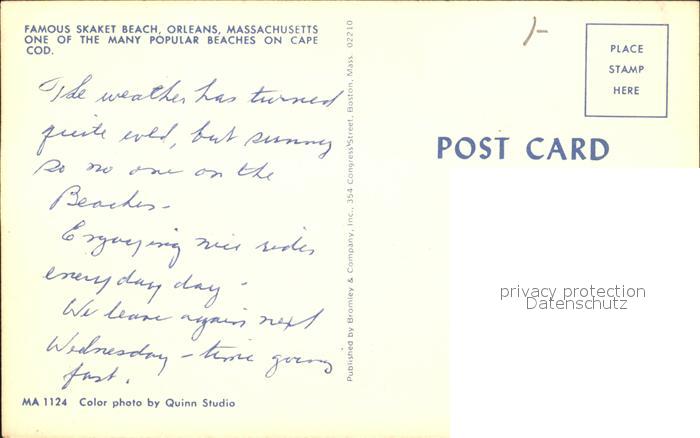 FAMOUS SKAKET BEACH, ORLEANS, MASSACHUSETTS
ONE OF THE MANY POPULAR BEACHES ON CAPE
COD.
The weather has turned
quite cold, but sunny
so no one on the
Beaches -
Enjoying nice rides
everyday day -
We leave again next
Wednesday - time going
fast.
MA 1124 Color photo by Quinn Studio
Published by Bromley & Company, Inc., 354 Congress Street, Boston, Mass. 02210
1-
PLACE
STAMP
HERE
POST CARD
privacy protection
Datenschutz